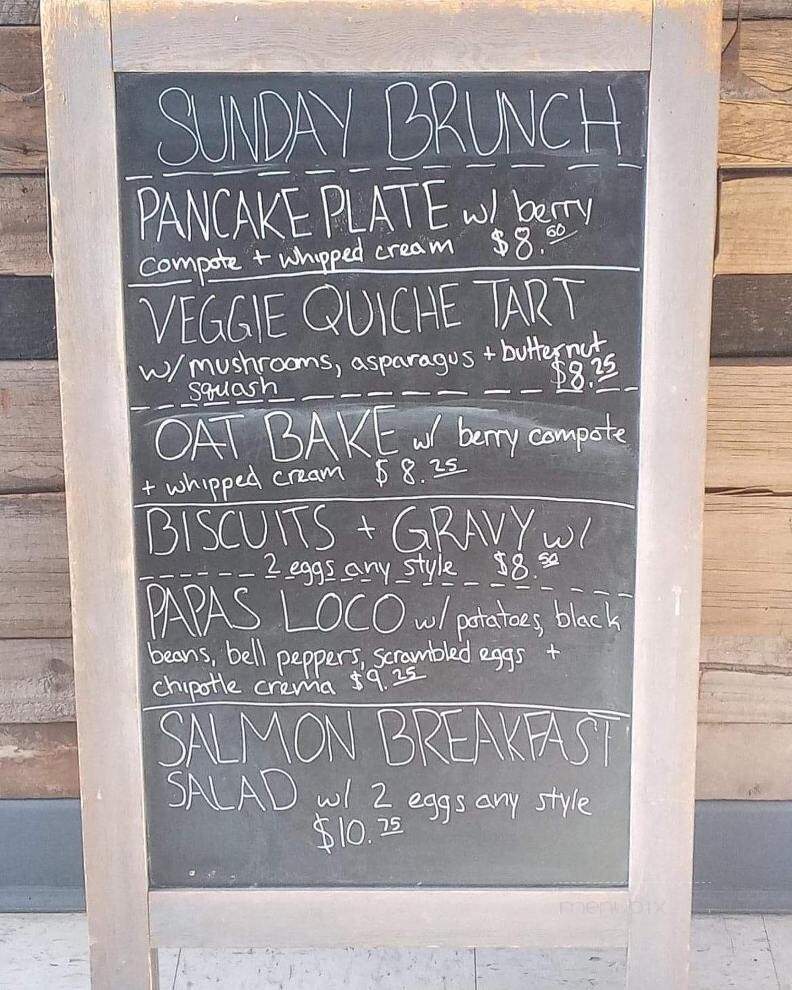 SUNDAY BRUNCH
PANCAKE PLATE w/ berry
compote + whipped cream $8.50
VEGGIE QUICHE TART
w/ mushrooms, asparagus + butternut
squash $8.25
OAT BAKE w/ berry compote
+ whipped cream $8.25
BISCUITS + GRAVY w/
2 eggs any style $8.50
PAPAS LOCO w/ potatoes, black
beans, bell peppers, scrambled eggs +
chipotle crema $9.25
SALMON BREAKFAST
SALAD w/ 2 eggs any style
$10.75
menupix